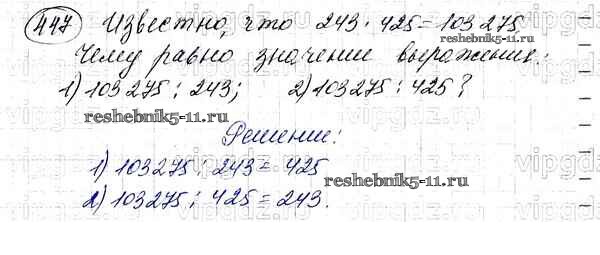 447 Известно, что 243 · 425 = 103 275.
Чему равно значение выражения:
1) 103 275 : 243; 2) 103 275 : 425?
reshebnik5-11.ru
Решение:
1) 103275 : 243 = 425
reshebnik5-11.ru
2) 103275 : 425 = 243.